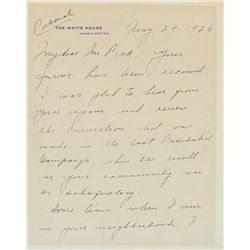 Personal
THE WHITE HOUSE
WASHINGTON
May 29 1924
My dear Mr. Pick. Your
favor has been received
I was glad to hear from
you again and renew
the connection that was
made in the last Presidential
Campaign, when the result
in your community was
so satisfactory.
Some time when I am
in your neighborhood I